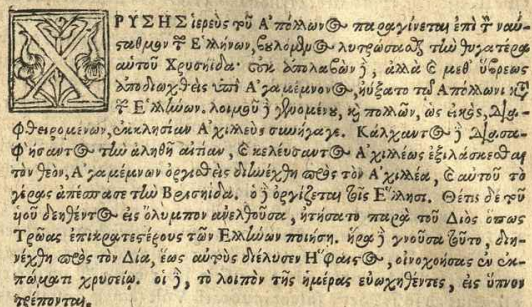 ΧΡΥΣΗΣ ἱερεὺς τοῦ Ἀπόλλωνος παραγίνεται ἐπὶ τὸν ναύ-
σταθμον τῶν Ἑλλήνων, βουλόμενος λυτρώσασθαι τὴν θυγατέρα
αὐτοῦ Χρυσηΐδα. οὐκ ἀπολαβὼν δὲ, ἀλλὰ καὶ μεθ' ὕβρεως
ἀποδιωχθεὶς ὑπὸ Ἀγαμέμνονος, ηὔξατο τῷ Ἀπόλλωνι κατὰ
τῶν Ἑλλήνων. λοιμοῦ δὲ γενομένου, καὶ πολλῶν, ὡς εἰκὸς, δια-
φθειρομένων, ἐκκλησίαν Ἀχιλλεὺς συνήγαγε. Κάλχαντος δὲ διασα-
φήσαντος τὴν ἀληθῆ αἰτίαν, καὶ κελεύσαντος Ἀχιλλέως ἐξιλάσκεσθαι
τὸν θεὸν, Ἀγαμέμνων ὀργισθεὶς διηνέχθη πρὸς τὸν Ἀχιλλέα, καὶ αὐτοῦ τὸ
γέρας ἀπέσπασε τὴν Βρισηΐδα. ὁ δὲ ὀργίζεται τοῖς Ἕλλησι. Θέτις δὲ τοῦ
υἱοῦ δεηθέντος εἰς ὄλυμπον ἀνελθοῦσα, ᾐτήσατο παρὰ τοῦ Διὸς ὅπως
Τρῶας ἐπικρατεστέρους τῶν Ἑλλήνων ποιήσῃ. ἥρα δὲ γνοῦσα τοῦτο, διη-
νέχθη πρὸς τὸν Δία, ἕως αὐτοὺς διέλυσεν Ἥφαιστος, οἰνοχοήσας ἐν ἐκ-
πώματι χρυσείῳ. οἱ δὲ, τὸ λοιπὸν τῆς ἡμέρας εὐωχηθέντες, εἰς ὕπνον
τρέπονται.